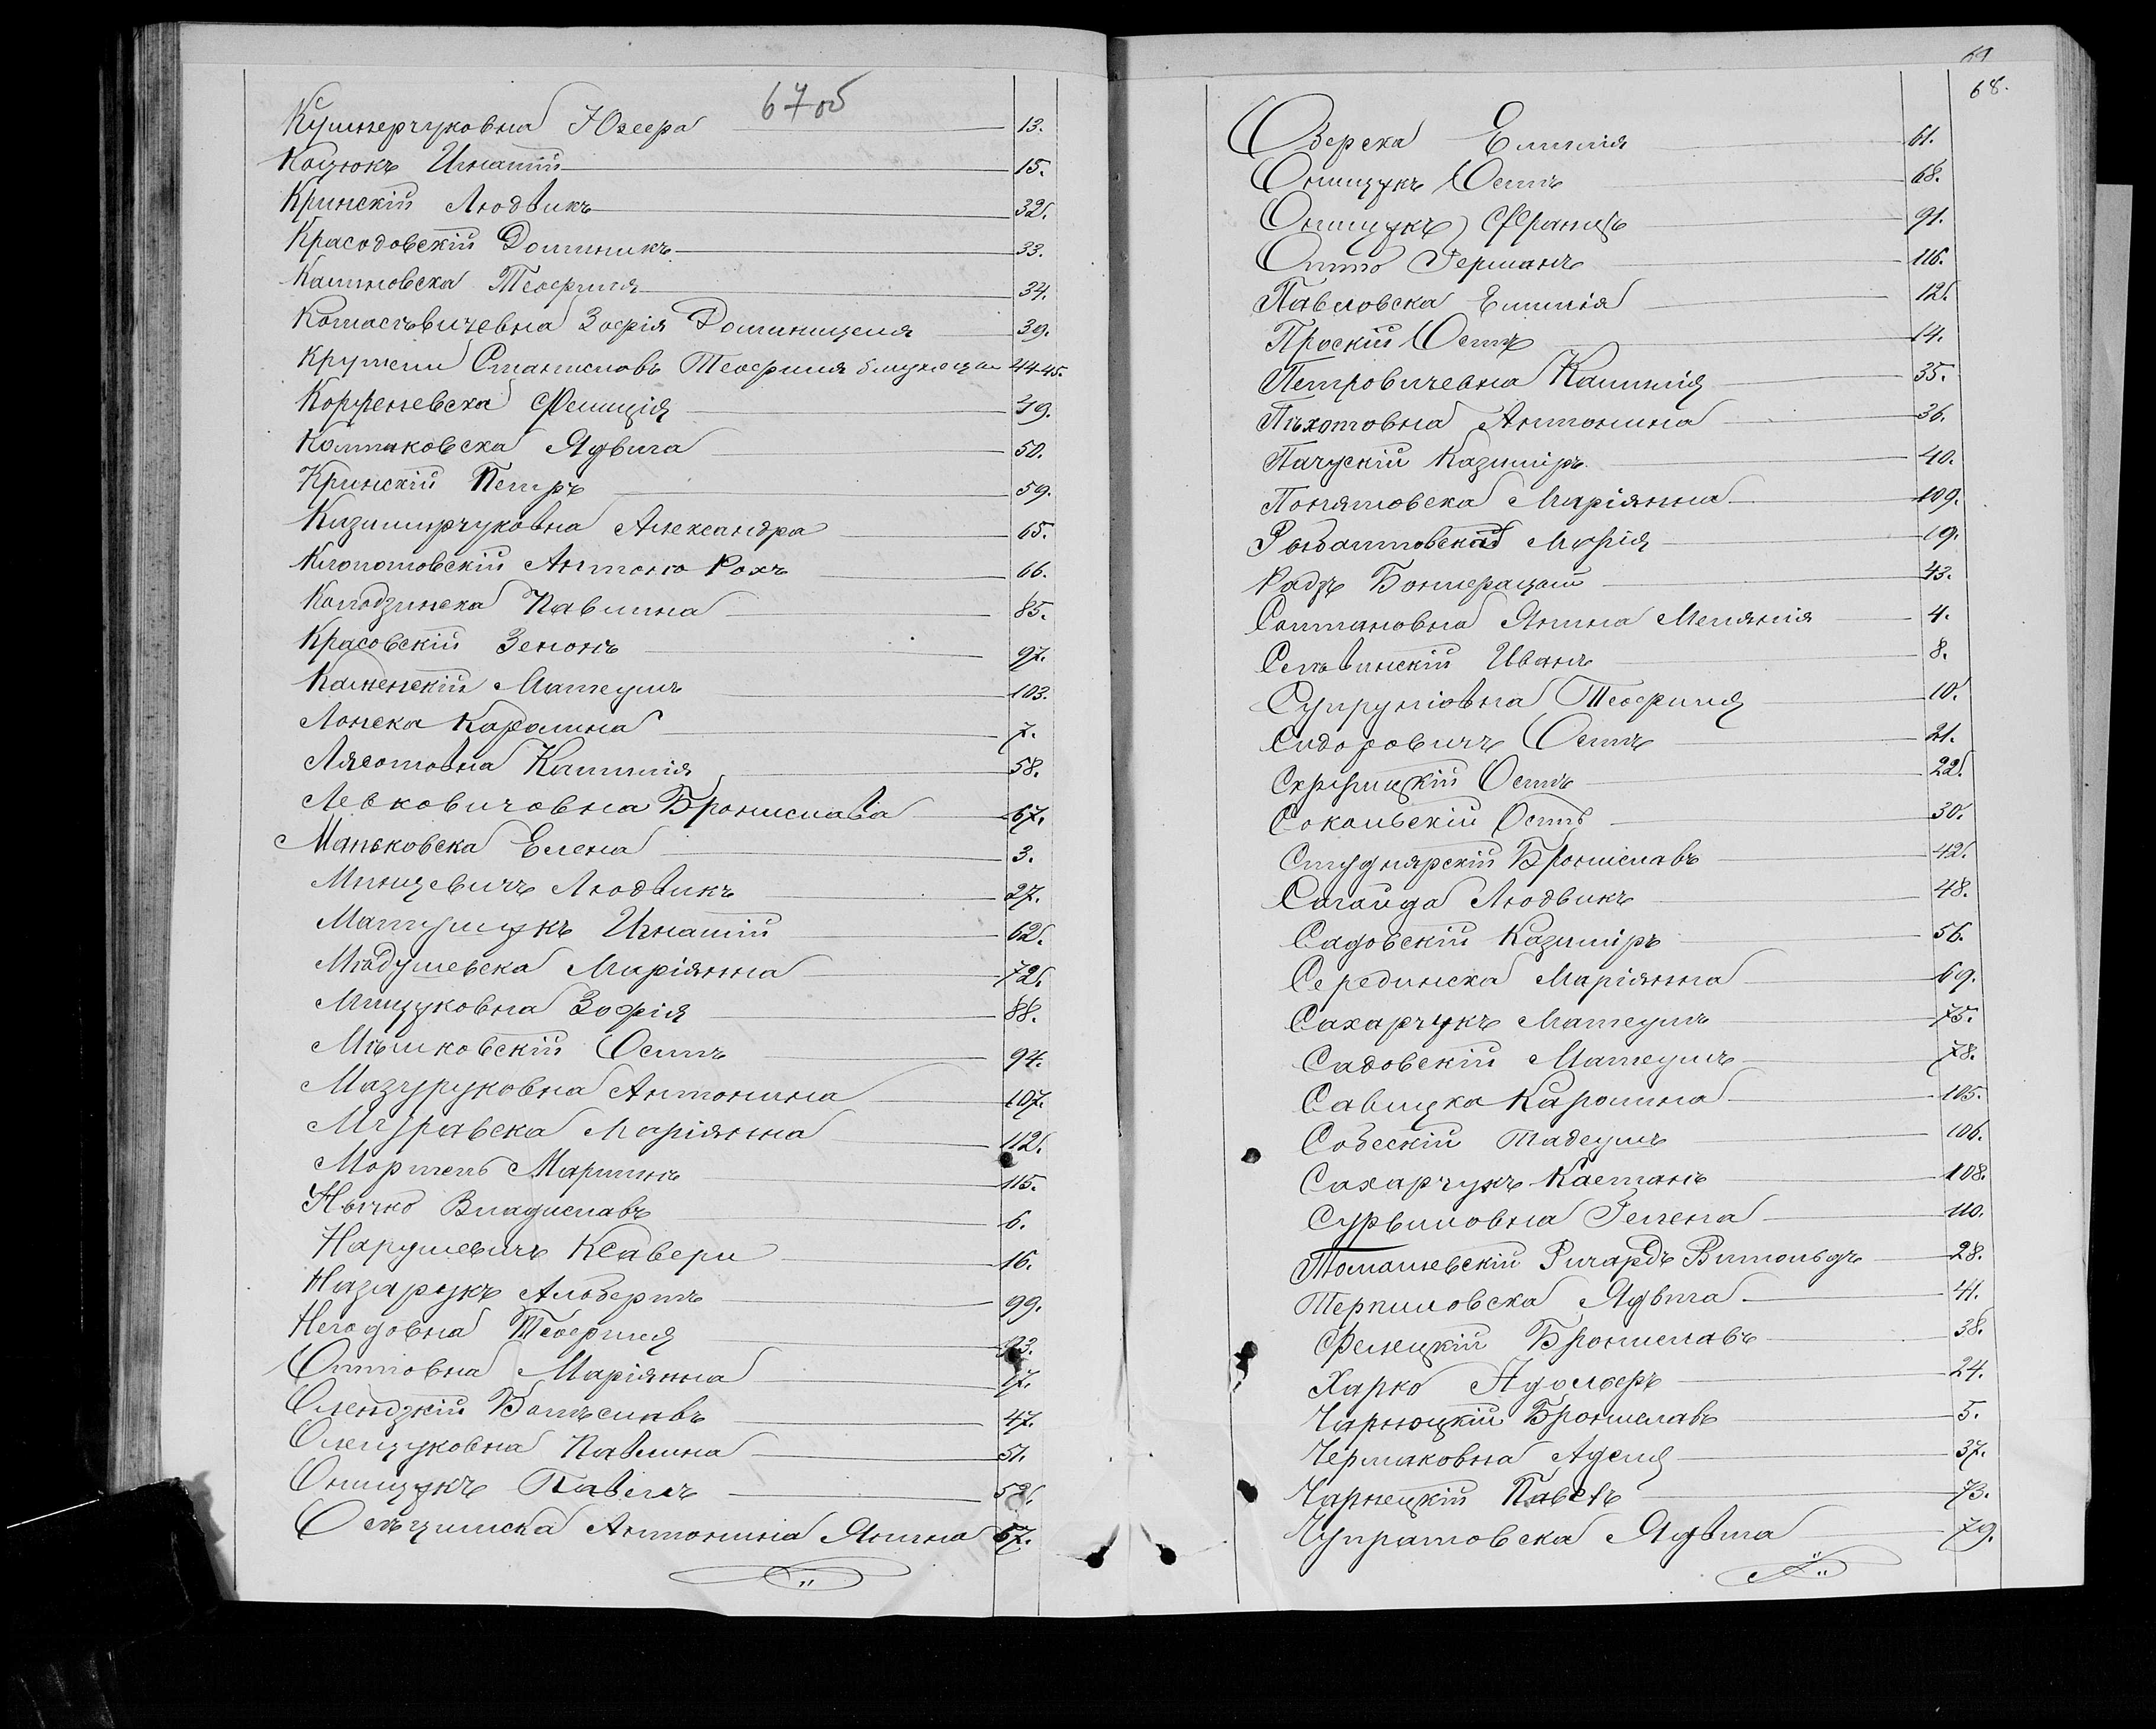 67об
Кушнерчуковна Юзефа 13.
Коцюкъ Игнатій 15.
Кринскій Людвикъ 32.
Красодовскій Доминикъ 33.
Калиновска Теофилия 34.
Зофія Доминицеля 39.
Крутели Станиславъ Теофилия близнецы 44-45.
Корженевска Фелиція 49.
Колпаковска Ядвига 50.
Кринскій Петръ 59.
Казимирчуковна Александра 65.
Клопотовскій Антоно Рохъ 66.
Колодзинска Павлина 85.
Красовскій Зенонъ 97.
Каменскій Матеушъ 103.
Лонска Каролина 7.
Лясотовна Камилія 58.
Левковичовна Брониславa 67.
Маньковска Елена 3.
Минцевичъ Людвикъ 27.
Матушукъ Игнатій 62.
Маріянна 72.
Мищуковна Зофія 88.
Мѣшковскій Осипъ 94.
Мазуруковна Антонина 107.
Муравска Маріянна 112.
Мартинъ 115.
Нычко Владиславъ 6.
Нарушевичъ Ксавери 16.
Назарукъ Альбертъ 99.
Теофилія
Оттовна Маріянна 17.
Олендзкій Болѣславъ 47.
Олещуковна Павлина 51.
Онищукъ Павелъ
Антонина Янина 57.
69
68.
Озерска Емилія 61.
Онищукъ Осипъ 68.
Онищукъ Францъ 91.
Отто Германъ 116.
Павловска Емилія 12.
Проскій Осипъ 14.
Петровичевна Камилія 35.
Пѣхотовна Антонина 36.
Пачускій Казимиръ 40.
Понятовска Маріянна 109.
Марія 19.
Радзъ Бонифацый 43.
Солтановна Янина Меланія 4.
Иванъ 8.
Супруніовна Теофилія 10.
Сидоровичъ Осипъ 21.
Осипъ 22.
Сокольскій Осипъ 30.
Студнярскій Брониславъ 42.
Сагайда Людвикъ 48.
Садовскій Казимиръ 56.
Серединска Маріянна 69.
Сахарчукъ Матеушъ 75.
Садовскій Матеушъ 78.
Савицка Каролина 105.
Собескій Тадеушъ 106.
Сахарчукъ Каетанъ 108.
Сурвиловна Гелена 110.
Томашевскій Ричардъ Витольдъ 28.
Терпиловска Ядвига 41.
Фелецкій Брониславъ 38.
Харко Адольфъ 24.
Чарноцкій Брониславъ 5.
Чермаковна Аделя 37.
Чарнецкій Павелъ 73.
Чупратовска Ядвига 79.